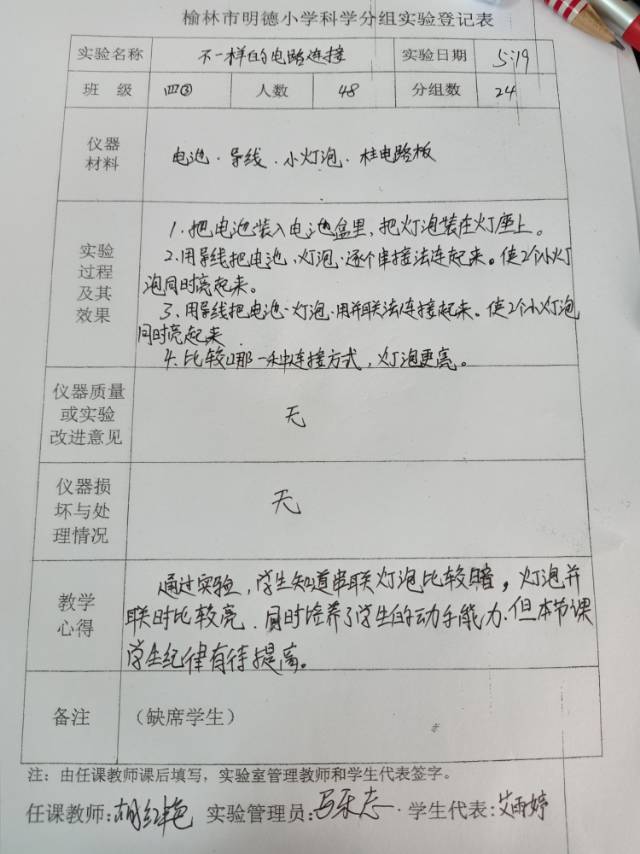 榆林市明德小学科学分组实验登记表
实验名称 不一样的电路连接 实验日期 5.19
班 级 四③ 人数 48 分组数 24
仪器
材料
电池、导线、小灯泡、柱电路板
实验
过程
及其
效果
1.把电池装入电池盒里,把灯泡装在灯座上。
2.用导线把电池、灯泡、逐个串接法连起来。使2个小灯
泡同时亮起来。
3、用导线把电池、灯泡、用并联法连接起来。使2个小灯泡
同时亮起来
4.比较哪一种连接方式,灯泡更亮。
仪器质量
或实验
改进意见
无
仪器损
坏与处
理情况
无
教学
心得
通过实验,学生知道串联灯泡比较暗,灯泡并
联时比较亮.同时培养了学生的动手能力.但本节课
学生纪律有待提高。
备注 (缺席学生)
注:由任课教师课后填写,实验室管理教师和学生代表签字。
任课教师:胡红艳 实验管理员: 学生代表:艾雨婷